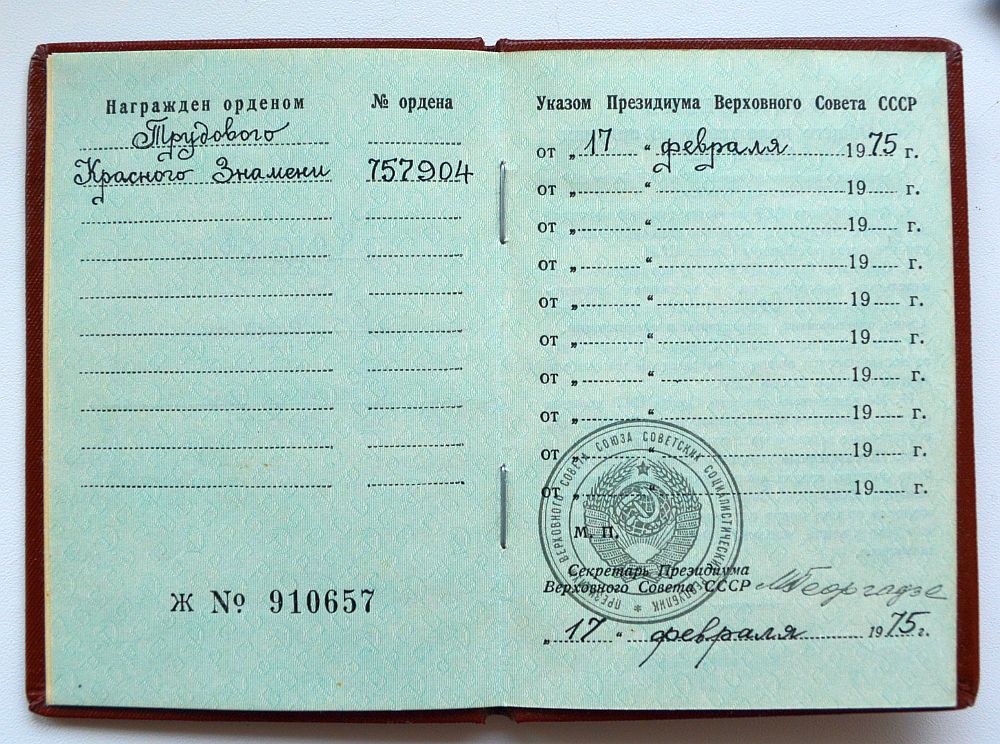 Награжден орденом № ордена
Трудового
Красного Знамени 757904
Ж № 910657
Указом Президиума Верховного Совета СССР
от „17“ февраля 1975 г.
от „ “ 19 г.
от „ “ 19 г.
от „ “ 19 г.
от „ “ 19 г.
от „ “ 19 г.
от „ “ 19 г.
от „ “ 19 г.
от „ “ 19 г.
от „ “ 19 г.
ПРЕЗИДИУМ ВЕРХОВНОГО СОВЕТА СОЮЗА СОВЕТСКИХ СОЦИАЛИСТИЧЕСКИХ РЕСПУБЛИК
М. П.
Секретарь Президиума
Верховного Совета СССР МГеоргадзе
„17“ февраля 1975 г.